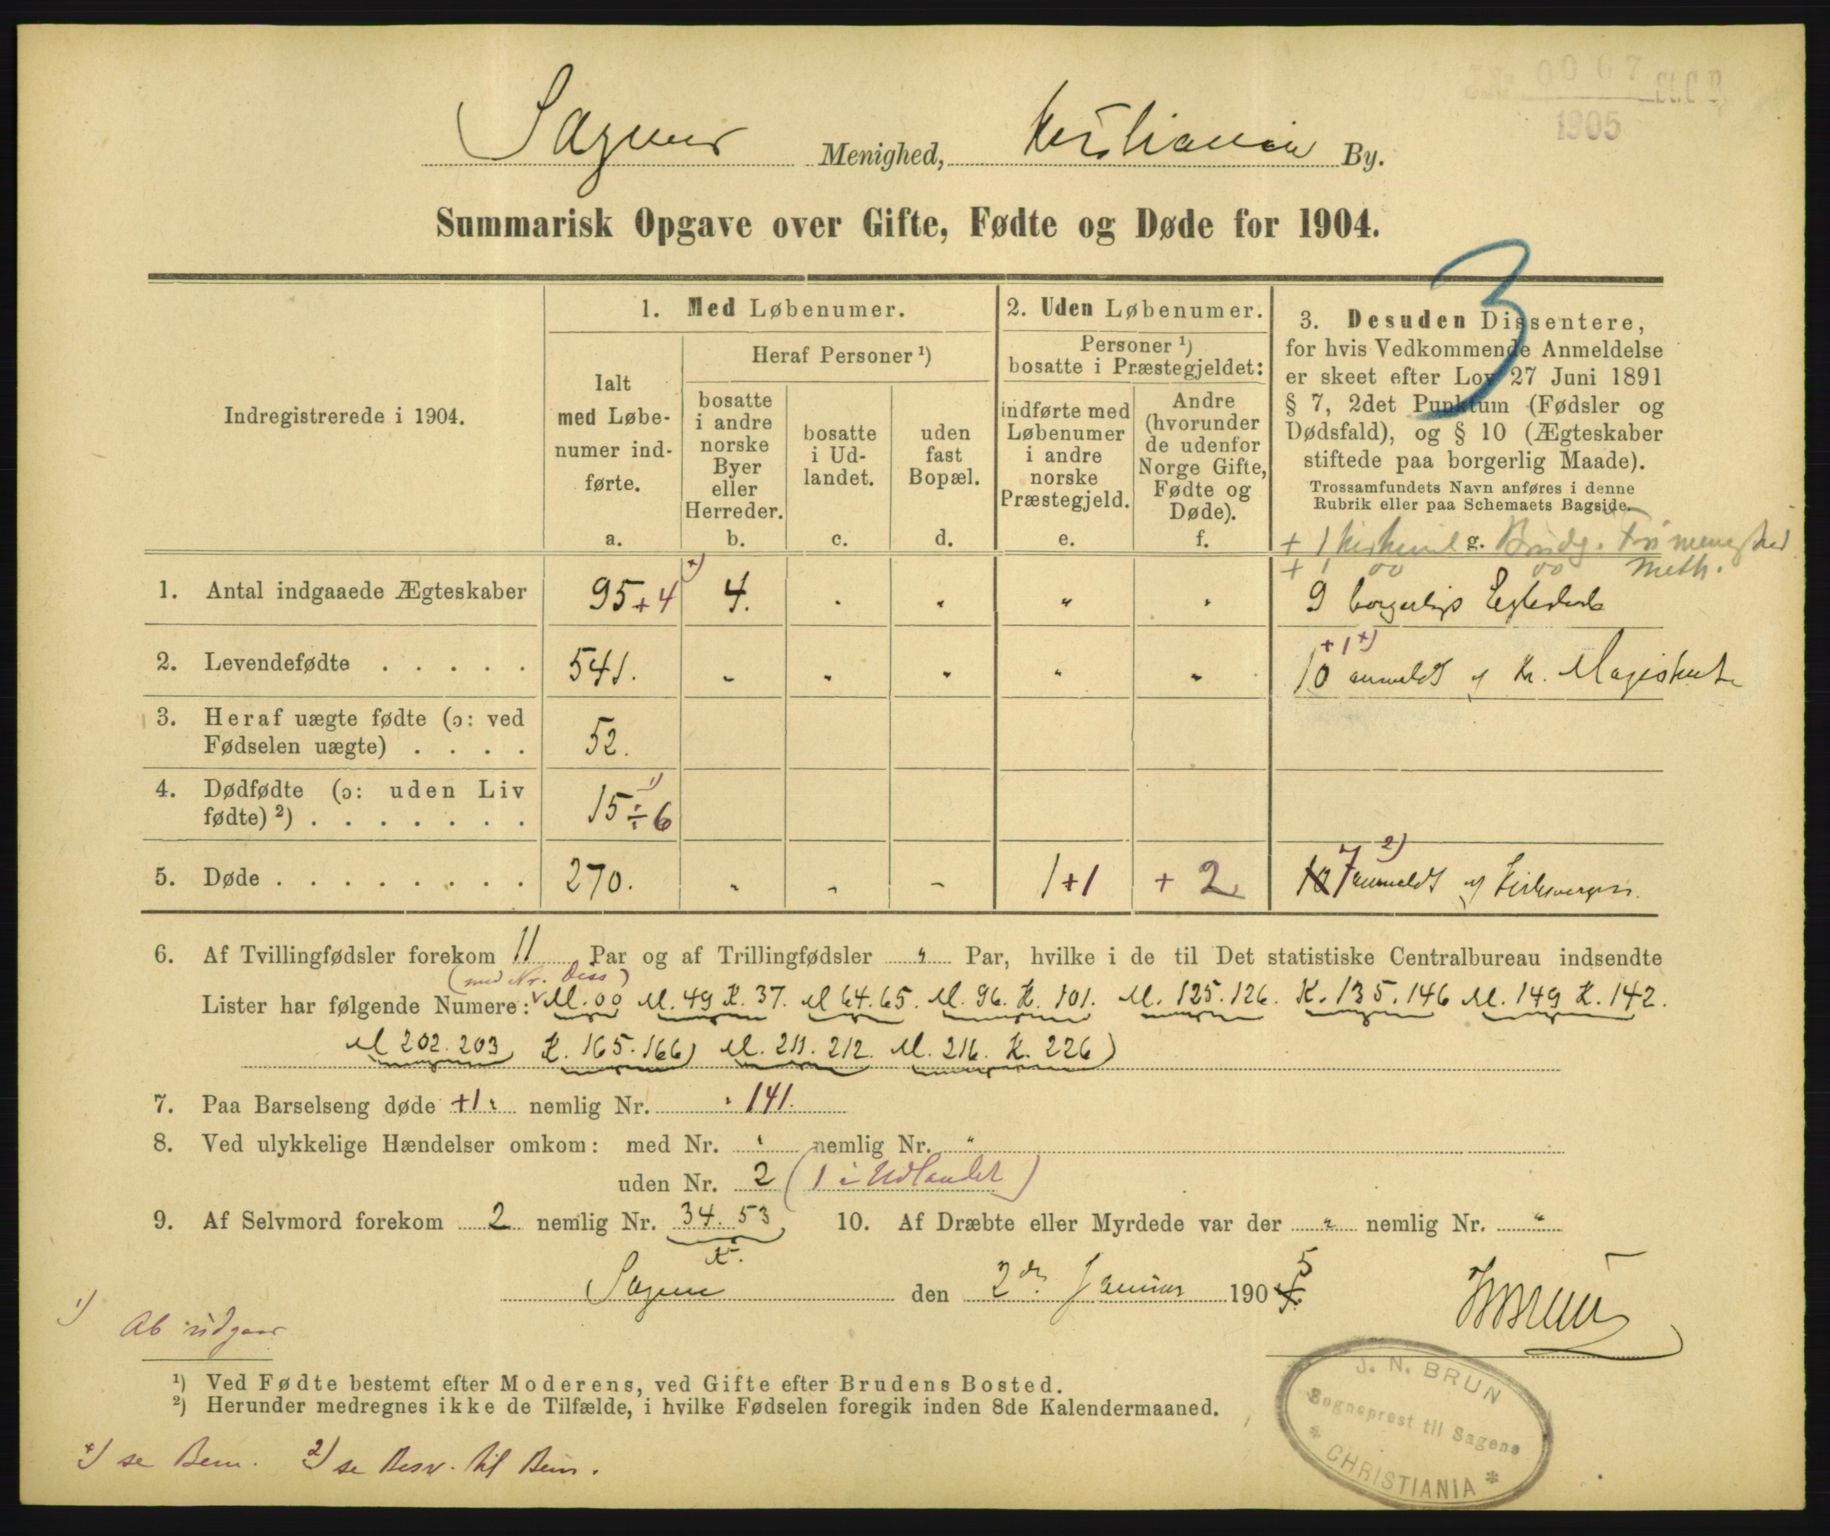 0067
1905
Sagene Menighed, Kristiania By.
Summarisk Opgave over Gifte, Fødte og Døde for 1904.
3
Indregistrerede i 1904.
1. Med Løbenumer.
Ialt
med Løbe-
numer ind-
førte.
a.
Heraf Personer ¹)
bosatte
i andre
norske
Byer
eller
Herreder.
b.
bosatte
i Ud-
landet.
c.
uden
fast
Bopæl.
d.
2. Uden Løbenumer.
Personer ¹)
bosatte i Præstegjeldet:
indførte med
Løbenumer
i andre
norske
Præstegjeld.
e.
Andre
(hvorunder
de udenfor
Norge Gifte,
Fødte og
Døde).
f.
3. Desuden Dissentere,
for hvis Vedkommende Anmeldelse
er skeet efter Lov 27 Juni 1891
§ 7, 2det Punktum (Fødsler og
Dødsfald), og § 10 (Ægteskaber
stiftede paa borgerlig Maade).
Trossamfundets Navn anføres i denne
Rubrik eller paa Schemaets Bagside.
g.
+ 1 Frimenighed
+ 1 Meth.
1. Antal indgaaede Ægteskaber 95 + 4 +) 4. " " " " 9 borgerlige
2. Levendefødte . . . . . 541. " " " " " 10 +1 +) anmeldt af Kr. Magistrat
3. Heraf uægte fødte (ɔ: ved
Fødselen uægte) . . . . 52.
4. Dødfødte (ɔ: uden Liv
fødte) ²) . . . . . . . 15 ÷ 6 ¹)
5. Døde . . . . . . . . 270. " " " 1+1 + 2 7 ²) anmeldt af Kirkevergen.
6. Af Tvillingfødsler forekom 11 Par og af Trillingfødsler " Par, hvilke i de til Det statistiske Centralbureau indsendte
(med Nr. Diss)
Lister har følgende Numere: M. 00 M. 49 K. 37. M 64.65. M. 96. K. 101. M. 125.126. K. 135.146 M. 149 K. 142.
M 202.203 K. 165.166 M. 211.212 M. 216. K. 226
7. Paa Barselseng døde +1 " nemlig Nr. " 141.
8. Ved ulykkelige Hændelser omkom: med Nr. " nemlig Nr. "
uden Nr. 2 (1 i Udlandet)
9. Af Selvmord forekom 2 nemlig Nr. 34. 53 10. Af Dræbte eller Myrdede var der " nemlig Nr. "
K.
Sagene den 2den Januar 1905
JNBrun
¹) Afudgaar
¹) Ved Fødte bestemt efter Moderens, ved Gifte efter Brudens Bosted.
²) Herunder medregnes ikke de Tilfælde, i hvilke Fødselen foregik inden 8de Kalendermaaned.
J. N. BRUN
Sogneprest til Sagene
* CHRISTIANIA *
+) se Bem. 2) se Besv. til Bem.